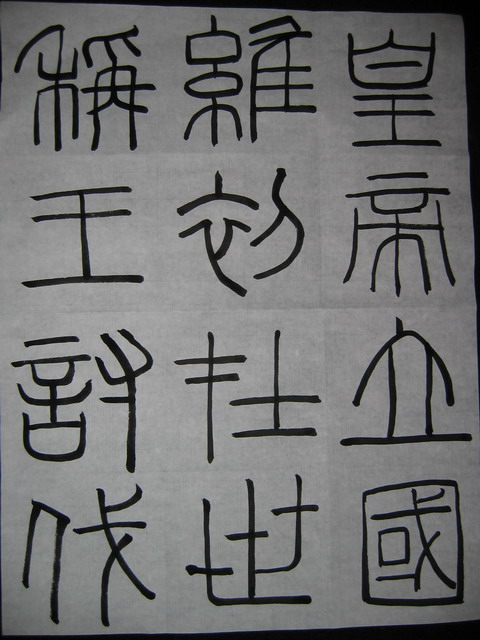 皇帝立國
維初在世
稱王討伐